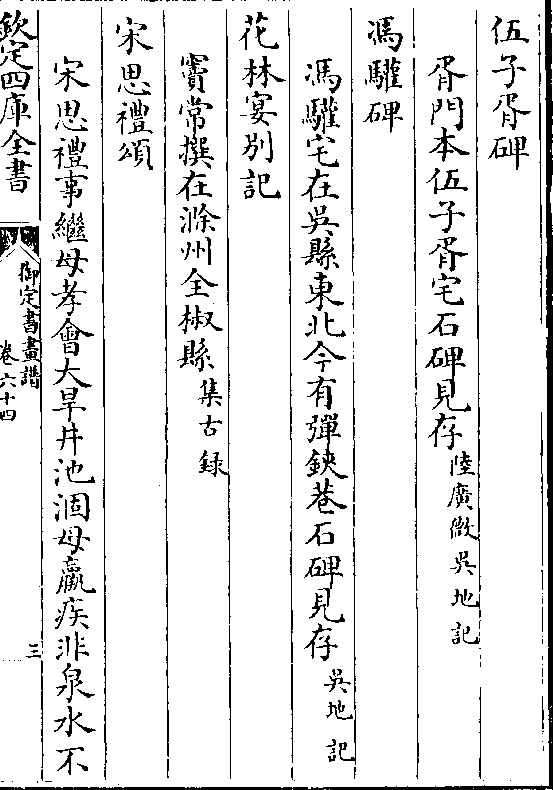 伍子胥碑
胥門本伍子胥宅石碑見存陸廣微吳地記
馮驩碑
馮驩宅在吳縣東北今有彈鋏巷石碑見存吳地記
花林宴別記
竇常撰在滁州全椒縣集古録
宋思禮頌
宋思禮事繼母孝會大旱井池涸母羸疾非泉水不
欽定四庫全書
御定書畫譜
卷六十四
三